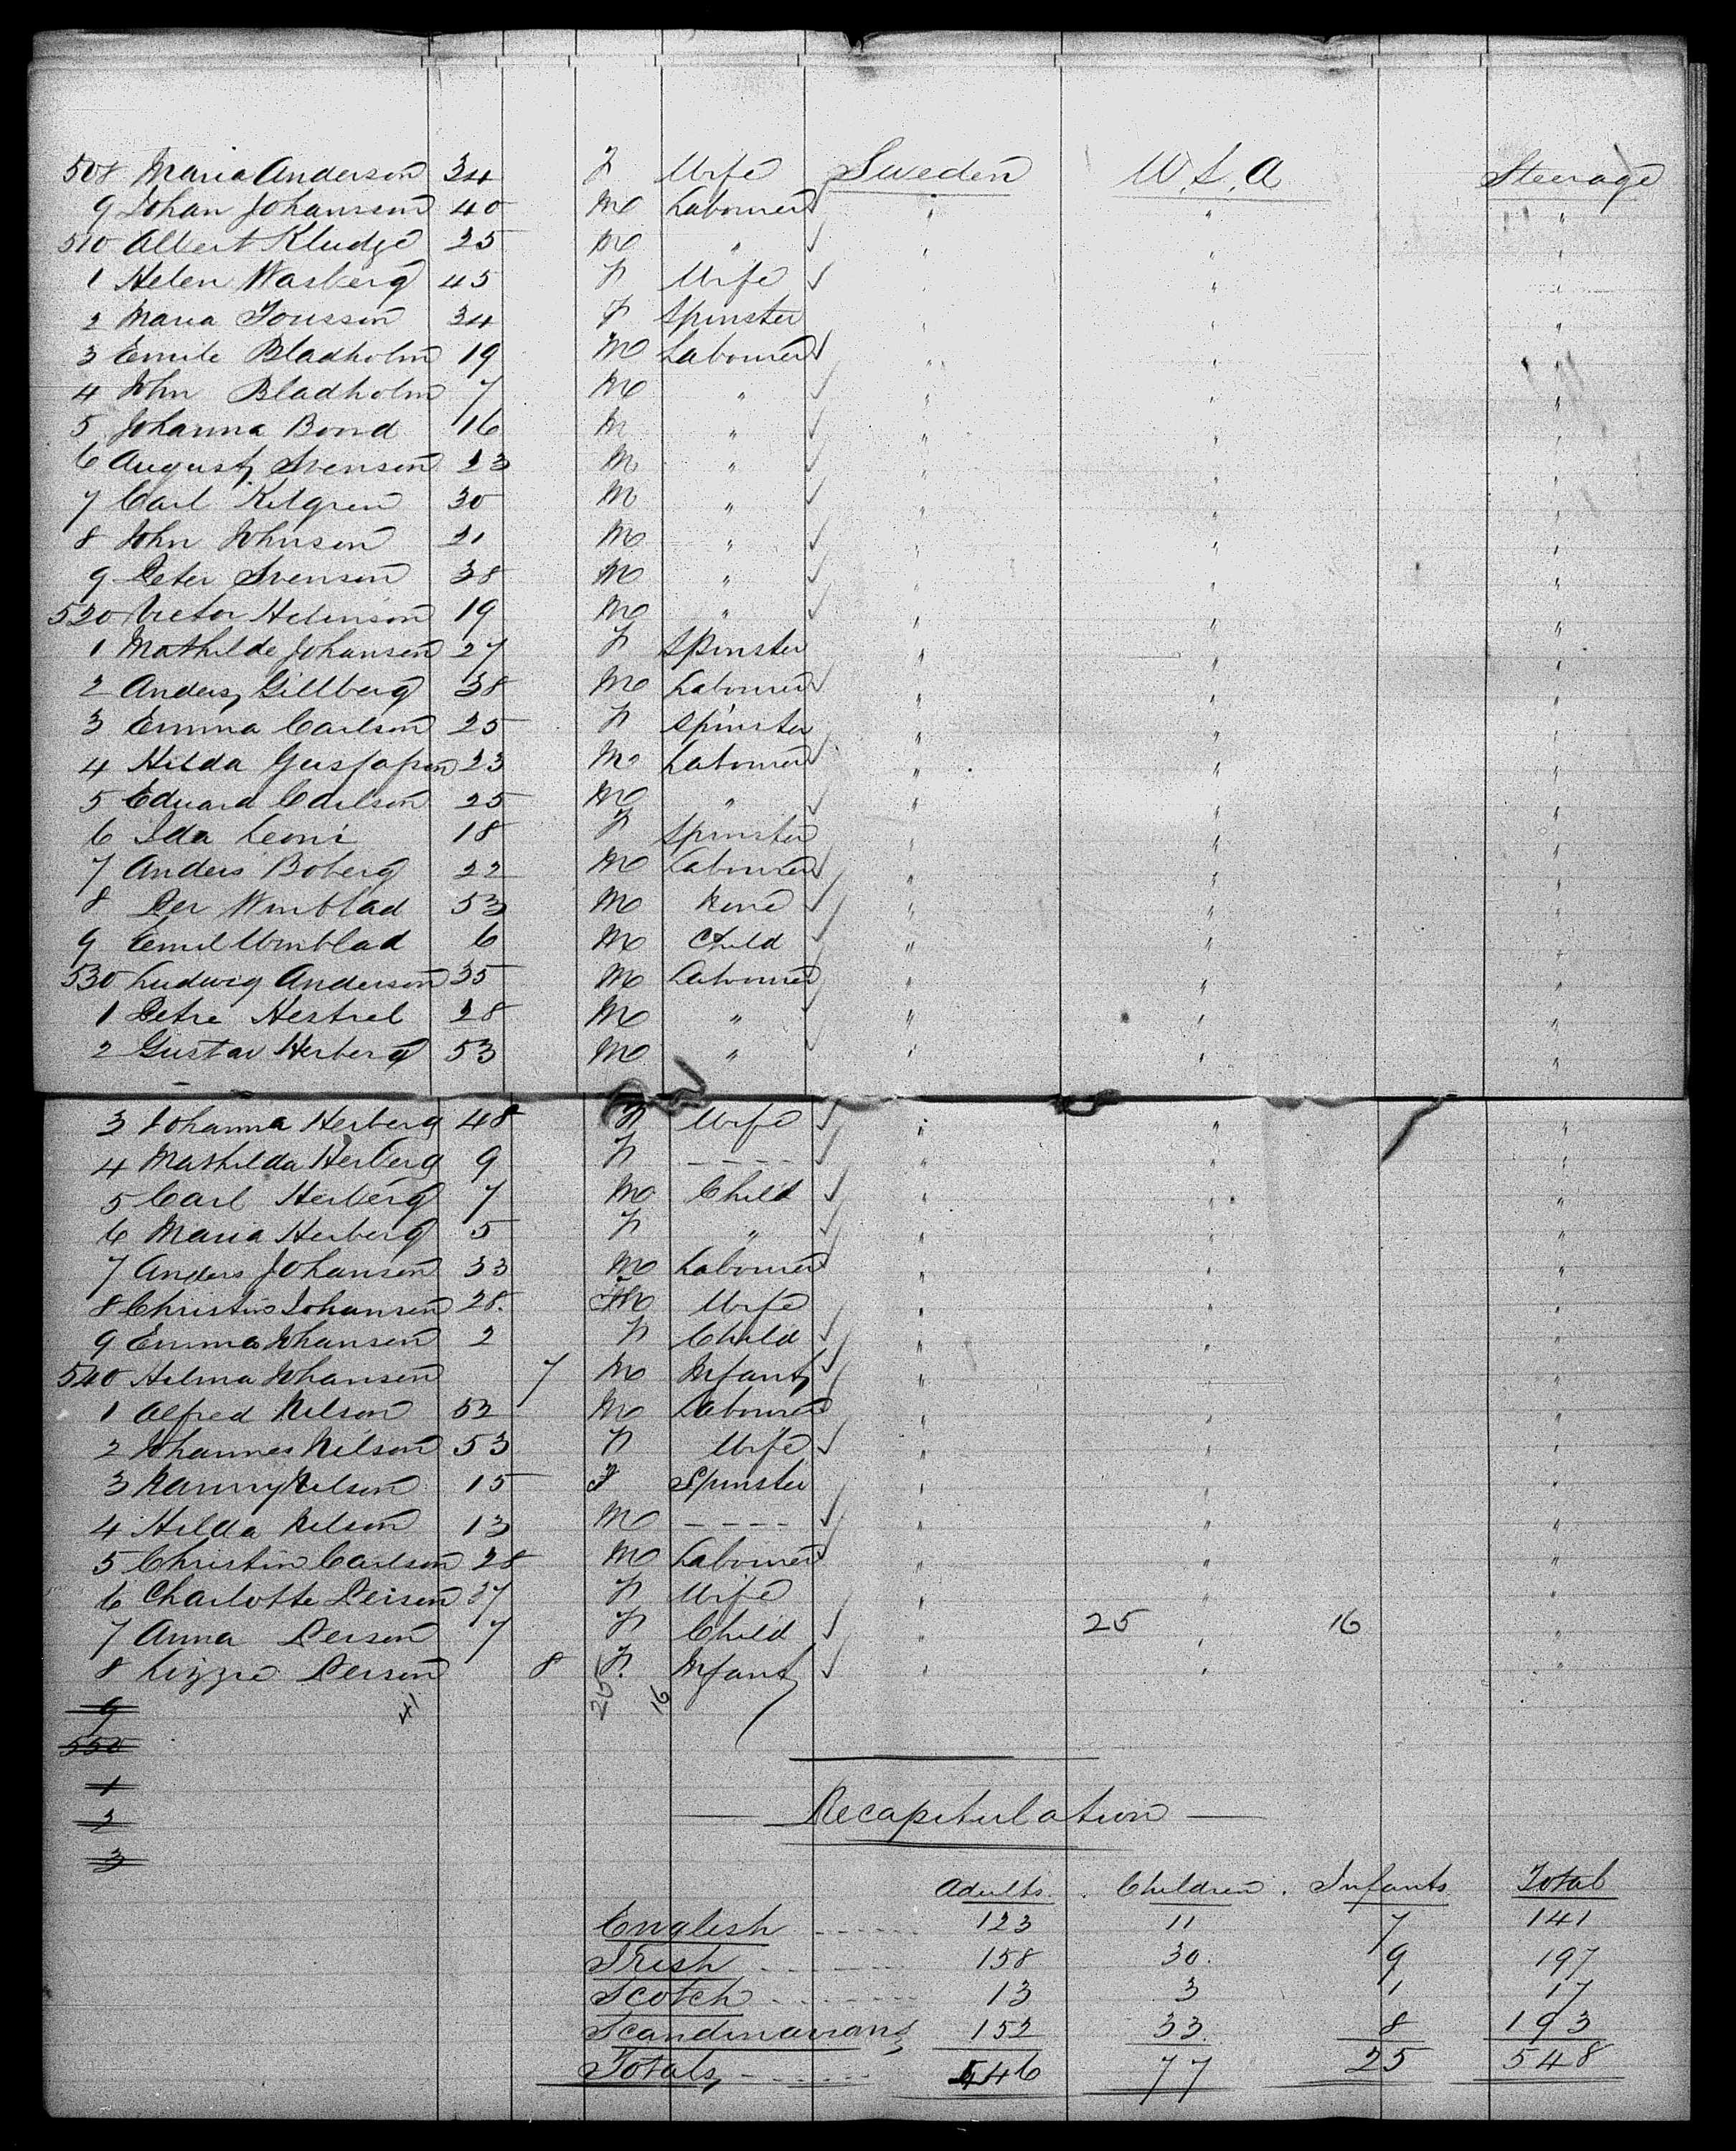 508 Maria Anderson 34 F Wife Sweden U.S.A Steerage
9 Johan Johansson 40 M Labourer ✓ " " "
510 Albert Kludge 25 M " ✓ " " "
1 Helen Wasberg 45 F Wife ✓ " " "
2 Maria 34 F Spinster " " "
3 Emile Bladholm 19 M Labourer ✓ " " "
4 John Bladholm 7 M " ✓ " " "
5 Johanna Bond 16 M " ✓ " " "
6 August Svenson 23 M " ✓ " " "
7 Carl Kilgren 30 M " ✓ " " "
8 John Johnson 21 M " ✓ " " "
9 Peter Svenson 38 M " ✓ " " "
520 Victor Helinson 19 M " ✓ " " "
1 Mathilde Johansen 27 F Spinster " " "
2 Anders Gillberg 38 M Labourer ✓ " " "
3 Emma Carlson 25 F Spinster " " "
4 Hilda Gustafson 23 M Labourer ✓ " " "
5 Eduard Carlson 25 M " ✓ " " "
6 Ida Leoni 18 F Spinster " " "
7 Anders Boberg 22 M Labourer ✓ " " "
8 Per Winblad 53 M None ✓ " " "
9 Emil Winblad 6 M Child ✓ " " "
530 Ludwig Anderson 35 M Labourer ✓ " " "
1 Petre Hestrel 28 M " ✓ " " "
2 Gustav Herberg 53 M " ✓ " " "
3 Johanna Herberg 48 F Wife ✓ " " "
4 Mathilda Herberg 9 F - - - - ✓ " " "
5 Carl Herberg 7 M Child ✓ " " "
6 Maria Herberg 5 F " ✓ " " "
7 Anders Johansen 33 M Labourer ✓ " " "
8 Christin Johansen 28. Wife ✓ " " "
9 Emma Johansen 2 F Child ✓ " " "
540 Hilma Johansen 7 M Infant ✓ " " "
1 Alfred Nelson 52 M Labourer " " "
2 Johannes Nelson 53 F Wife ✓ " " "
3 Nanny Nelson 15 F Spinster " " "
4 Hilda Nelson 13 M - - - - ✓ " " "
5 Christin Carlson 28 M Labourer ✓ " " "
6 Charlotte Peison 37 F Wife " " "
7 Anna Peison 7 F Child ✓ " 25 " 16 "
8 Lizzie Peison 8 F. Infant ✓ " " "
9 41 25 16
550
1
2
3
Recapitulation
Adults. Children. Infants Total
English - - - - 123 11 7 141
Irish - - - - 158 30. 9 197
Scotch - - - - 13 3 1 17
Scandinavians 152 33. 8 193
Totals, - - - - 446 77 25 548